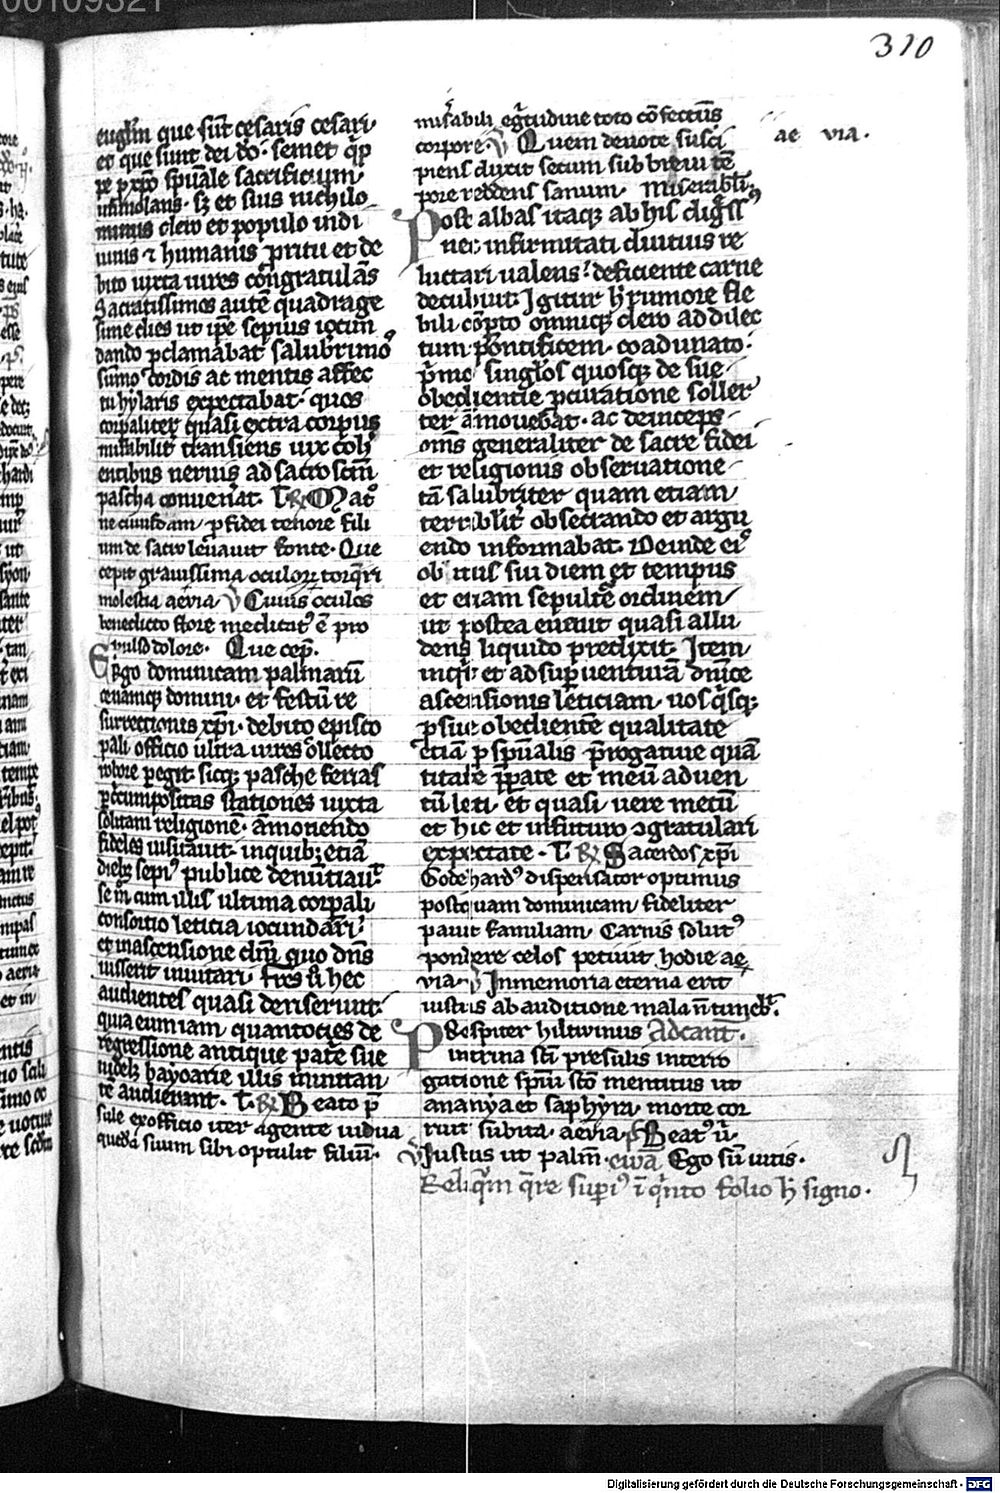 310
euglm que sūt cesaris cesari
et que sunt dei dō. semet q̄p
pe p xpō spūale sacrificium
immolans. sꝫ et suis nichilo
minus clero et populo indi
uinis ⁊ humanis p̄ritu et de
bito iuxta uires congratulās
Sacratissimos autē quadrage
sime dies ut ipē sepius iocun
dando p̄clamabat salubrimo
sūmo cordis ac mentis affec
tu hylaris expectabat. quos
corpaliter quasi extra corpus
mirabilit᷑ transiens uix coh
entibus neruis ad sacro scm̄
pascha conuenat. L. R Mat᷑
ne cuiusdam p fidei tenore fili
um de sacro leuauit fonte. Que
cepit grauissima oculoꝝ torq̄ri
molestia aevia V Cuius oculos
benedicto flore medicat᷑ ē pro
pulso dolore. Que cep.
Ergo dominicam palmarū
cenamqꝫ domini. et festū re
surrectionis xp̄i. debito episco
pali officio ultra uires collecto
robore pegit. sicqꝫ pasche ferias
p circumpositas stationes iuxta
solitam religionē. āmonendo
fideles uisitauit. in quibꝫ etiā
diebꝫ sepi᷒ publice denūtiau᷑
se in cum illis ultima corpali
consortio leticia iocundari
et in ascensione dn̄i quo dn̄s
iusserit inuitari. frēs ū hec
audientes quasi denserunt
quia eum iam quantocies de
regressione antique patē sue
uidelꝫ bayoarie illis minitan
te audierant. L. R Beato p̄
sule ex officio iter agente uidua
quedā suum sibi optulit filiū.
mis᷑abili eg̅tudine toto cōfectūs
corpore. V Quem deuote susci ae via.
piens duxit secum sub breui tē
pore reddens sanum. Miserabili
Post albas itaqꝫ ab his dig̅ss
uei infirmitati diutius re
luctari ualens. deficiente carne
decubuit. Igitur h rumore fle
bili cōpto omniqꝫ clero ad dilec
tum pontificem. coadunato.
p̄mo singlos quosqꝫ de sue
obedientie pcuratione soller
ter āmouebat. ac deinceps
om̄s generaliter de sacre fidei
et religionis obseruatione
tā salubriter quam etiam
terribilit᷑ obsecrando et argu
endo informabat. Deinde ei᷒
obitus sui diem et tempus
et etiam sepulte ordinem
ut postea euenit quasi allu
dens liquido predixit. Item
inq̄t et ad sup uenturā dn̄ice
ascensionis leticiam. uos q̄sqꝫ
p sue obedientē qualitate
etiā p spūalis p̄rogatiue quā
titate p̄pate et meū aduen
tū leti. et quasi uere mecū
et hic et in futuro ɔgratulari
expectate. L. R Sacerdos xp̄i
Godehard᷒ dispensator optimus
postquam dominicam fideliter
pauit familiam Carnis solut᷒
pondere celos petiuit hodie ae
via. V In memoria eterna erit
iustus ab auditione mala n̄ timeb᷑.
Prespiter hiltwinus Ad cant.
in trina sc̄i presulis interro
gatione spm̄ sc̄o mentitus ut
ananya et saphyra morte cor
ruit subita. aevia. Beat᷒ u.
V Iustus ut palm̄. ewā Ego sū uitis.
Reliq̄m q̄re superi᷒ ī q̄nto folio h signo.
Digitalisierung gefördert durch die Deutsche Forschungsgemeinschaft - DFG